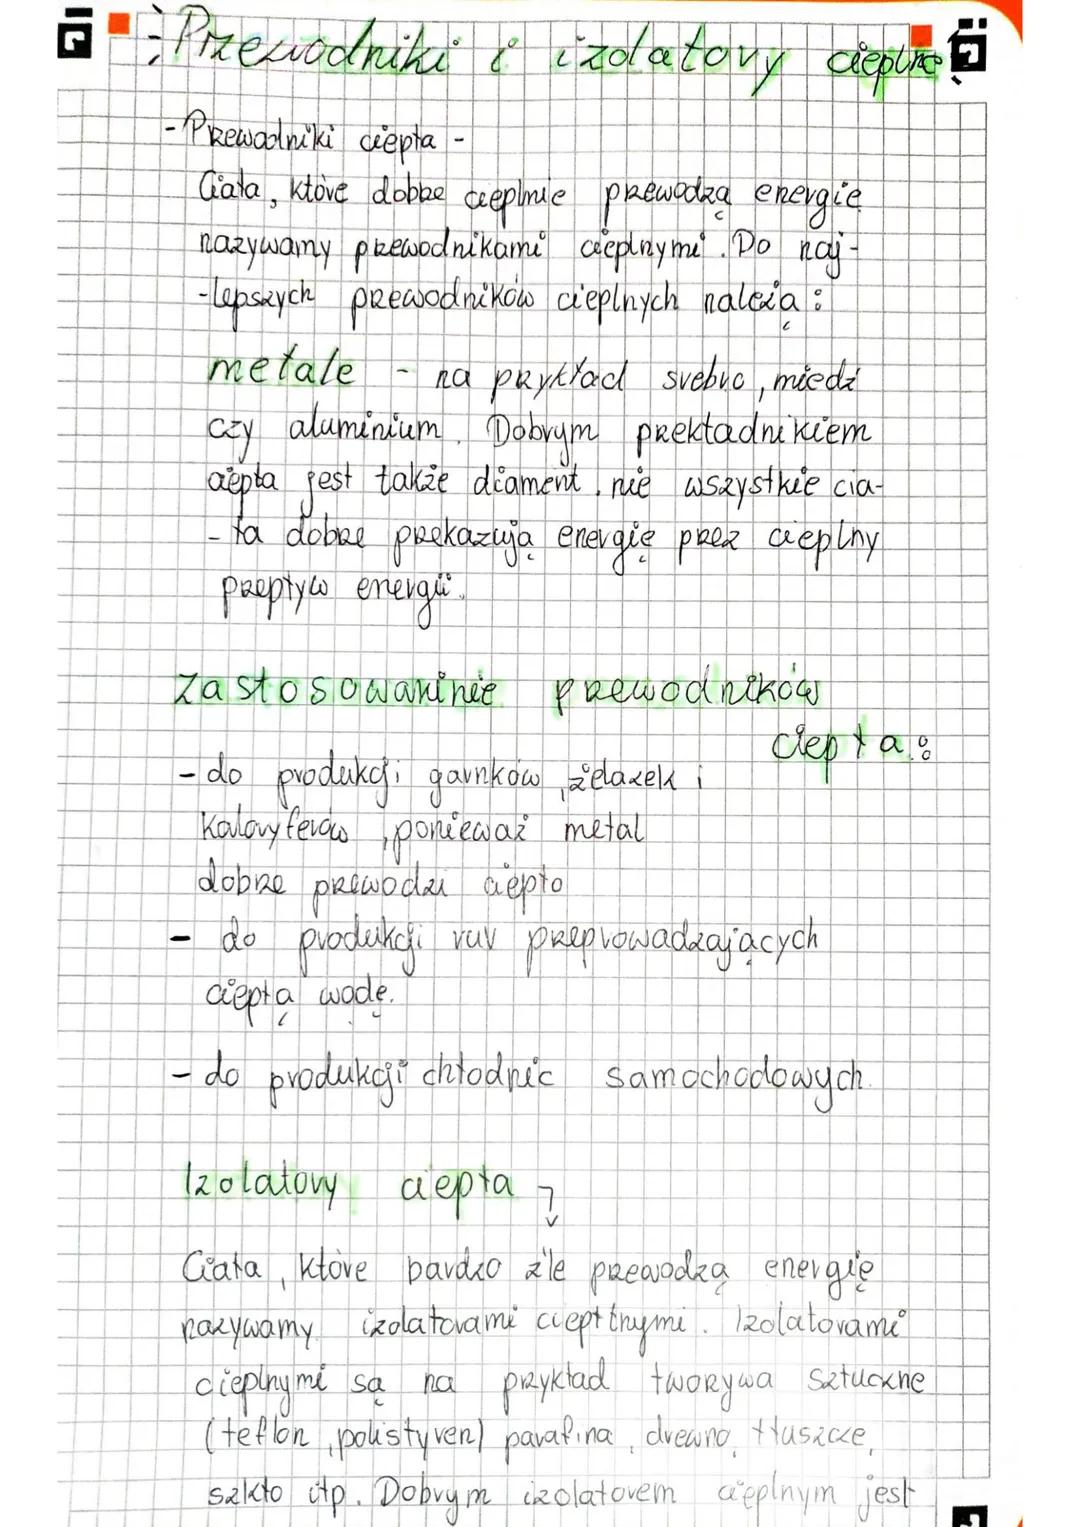 Przewodniki i izolatory cieplne
- Przewodniki ciepła -
Ciała, które dobrze cieplnie przewodzą energię
nazywamy przewodnikami cieplnymi. Do naj-
-lepszych przewodników cieplnych należą:
metale - na przykład srebro, miedź
czy aluminium. Dobrym przekładnikiem
ciepła jest także diament. nie wszystkie cia-
- ła dobrze przekazują energię przez cieplny
przepływ energii.
Zastosowaninie przewodników
ciepła:
- do produkcji garnków, żelazek i
kaloryferów, ponieważ metal
dobrze przewodzi ciepło
- do produkcji rur przeprowadzających
ciepłą wodę.
- do produkcji chłodnic samochodowych.
Izolatory ciepła
Ciała, które bardzo źle przewodzą energię
nazywamy izolatorami ciepłnymi. Izolatorami
cieplnymi są na przykład tworzywa sztuczne
(teflon, polistyren) parafina, drewno, tłuszcze,
szkło itp. Dobrym izolatorem cieplnym jest